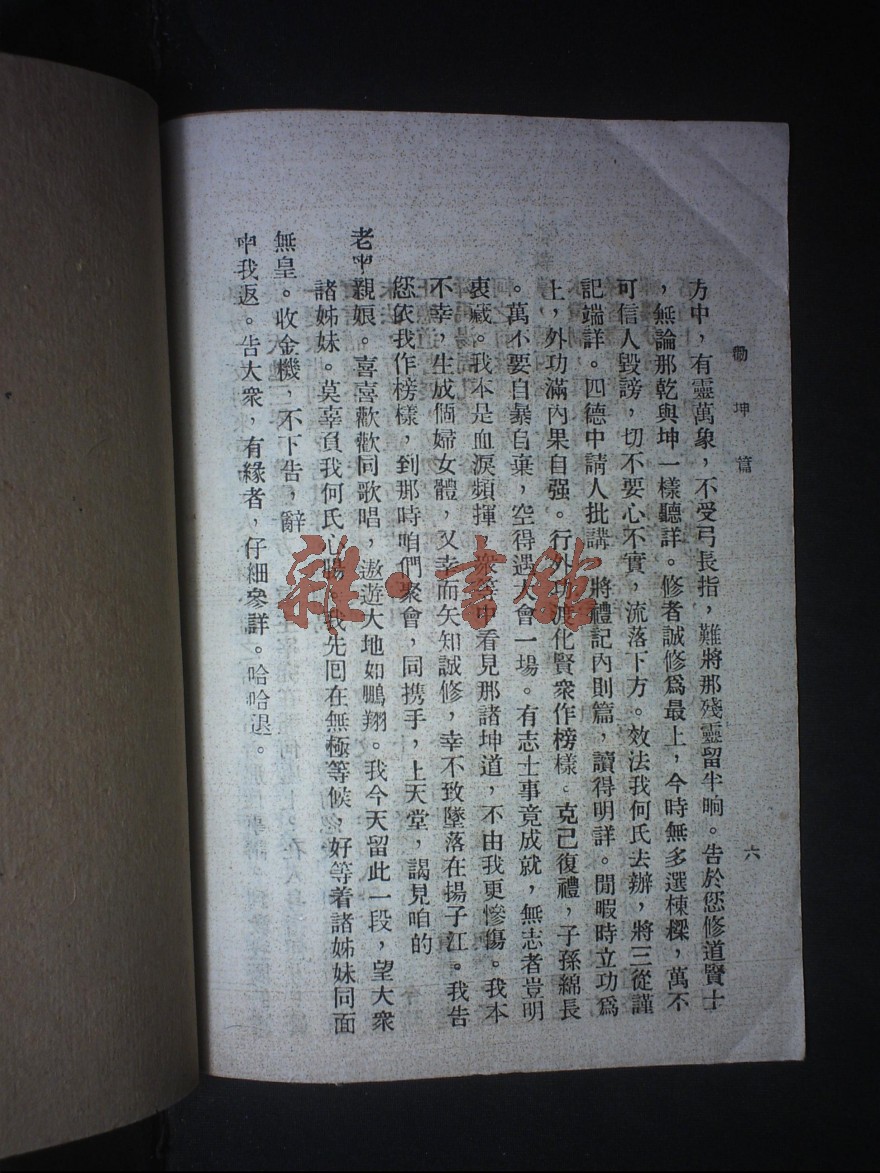 勸坤篇 六
方中，有靈萬象，不受弓長指，難將那殘靈留半晌。告於您修道賢士
，無論那乾與坤一樣聽詳。修者誠修爲最上，今時無多選棟樑，萬不
可信人毀謗，切不要心不實，流落下方。效法我何氏去辦，將三從謹
記端詳。四德中請人批講，將禮記內則篇，讀得明詳。閒暇時立功爲
上，外功滿內果自强。行外功渡化賢衆作榜樣。克己復禮，子孫綿長
。萬不要自暴自棄，空得遇人會一場。有志士事竟成就，無志者豈明
衷藏。我本是血淚頻揮，衆等中看見那諸坤道，不由我更慘傷。我本
不幸，生成個婦女體，又幸而矢知誠修，幸不致墜落在揚子江。我告
您依我作榜樣，到那時咱們聚會，同携手，上天堂，謁見咱的
老親娘。喜喜歡歡同歌唱，遨遊大地如鵬翔。我今天留此一段，望大衆
諸姊妹。莫辜負我何氏心腸。我先囘在無極等候，好等着諸姊妹同面
無皇。收金機，不下告，辭
我返。告大衆，有緣者，仔細參詳。哈哈退。
雜·書館